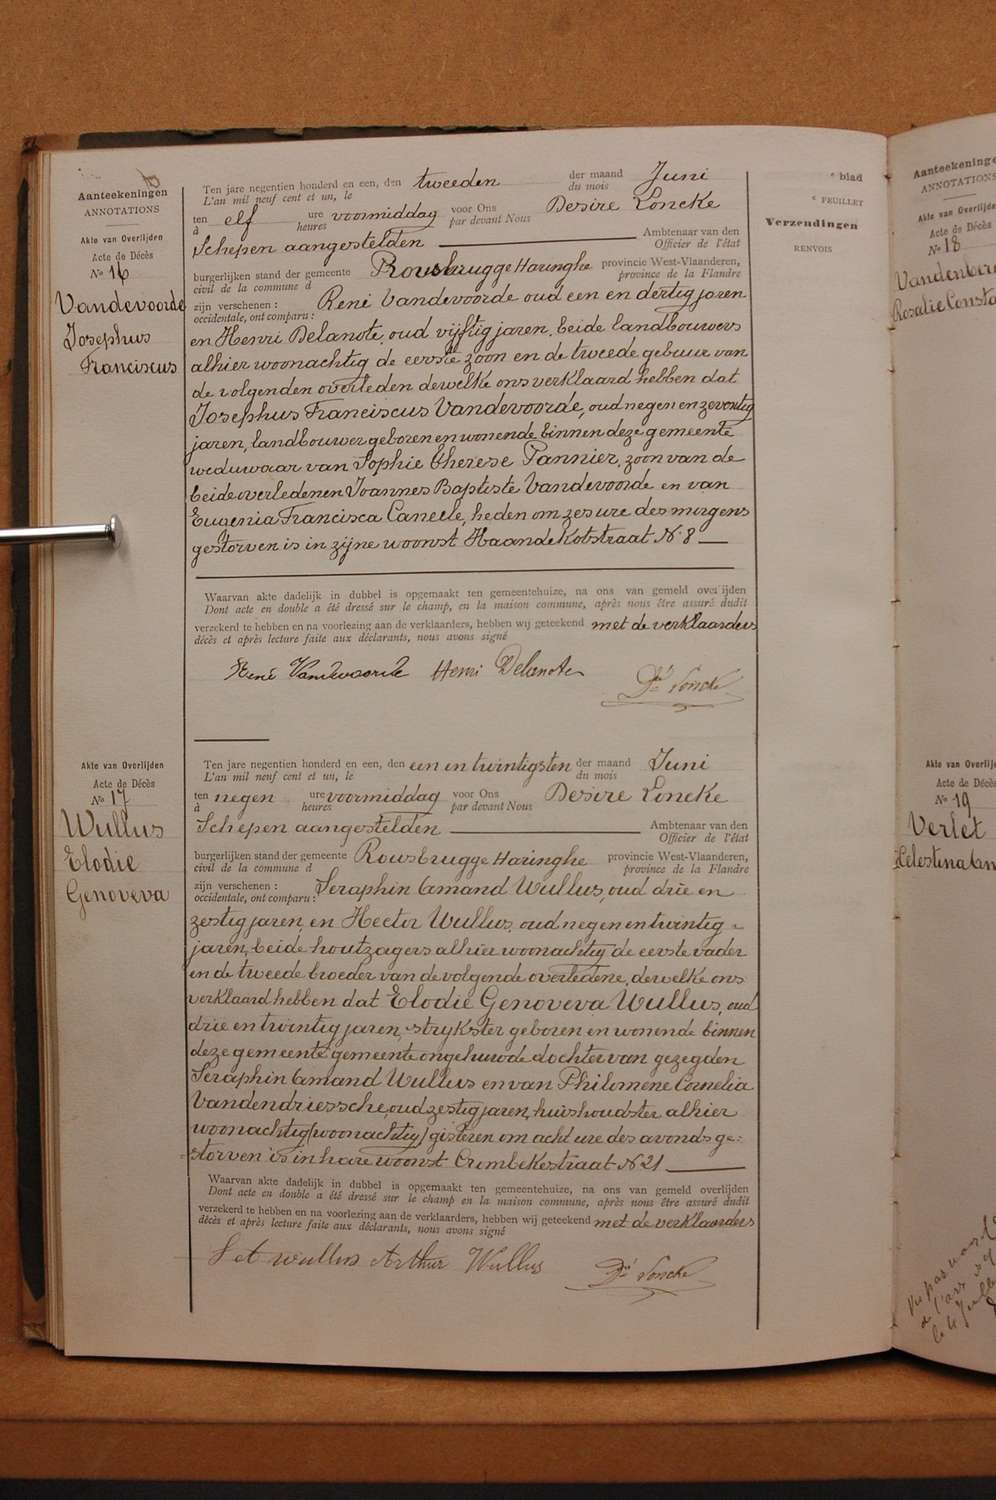 Aanteekeningen
ANNOTATIONS
Akte van Overlijden
Acte de Décès
No 16
Vandevoorde
Josephus
Franciscus
Ten jare negentien honderd en een, den tweeden der maand Juni
L'an mil neuf cent et un, le du mois
ten elf ure voormiddag voor Ons Desire Loncke
à heures par devant Nous
Schepen aangestelden Ambtenaar van den
Officier de l'état
burgerlijken stand der gemeente Rousbrugge Haringhe provincie West-Vlaanderen,
civil de la commune d province de la Flandre
zijn verschenen : René Vandevoorde oud een en dertig jaren
occidentale, ont comparu :
en Henri Delanote, oud vijftig jaren, beide landbouwers
alhier woonachtig de eerste zoon en de tweede gebuur van
de volgenden overleden dewelke ons verklaard hebben dat
Josephus Franciscus Vandevoorde, oud negen en zeventig
jaren, landbouwer geboren en wonende binnen deze gemeente
weduwaar van Sophie Therese Pannier, zoon van de
beide overledenen Joannes Baptiste Vandevoorde en van
Eugenia Francisca Caneele, heden om zes ure des morgens
gestorven is in zijne woonst Haandekotstraat N. 8
Waarvan akte dadelijk in dubbel is opgemaakt ten gemeentehuize, na ons van gemeld overlijden
Dont acte en double a été dressé sur le champ, en la maison commune, après nous être assuré dudit
verzekerd te hebben en na voorlezing aan de verklaarders, hebben wij geteekend met de verklaarders
décès et après lecture faite aux déclarants, nous avons signé
René Vandevoorde Henri Delanote
Dré Loncke
Akte van Overlijden
Acte de Décès
No 17
Wullus
Elodie
Genoveva
Ten jare negentien honderd en een, den een en twintigsten der maand Juni
L'an mil neuf cent et un, le du mois
ten negen ure voormiddag voor Ons Desire Loncke
à heures par devant Nous
Schepen aangestelden Ambtenaar van den
Officier de l'état
burgerlijken stand der gemeente Rousbrugge Haringhe provincie West-Vlaanderen,
civil de la commune d province de la Flandre
zijn verschenen : Seraphin Amand Wullus, oud drie en
occidentale, ont comparu :
zestig jaren, en Hector Wullus, oud negen en twintig
jaren, beide houtzagers alhier woonachtig de eerste vader
en de tweede broeder van de volgende overledene, dewelke ons
verklaard hebben dat Elodie Genoveva Wullus, oud
drie en twintig jaren, strykster geboren en wonende binnen
deze gemeente gemeente ongehuwde dochter van gezegden
Seraphin Amand Wullus en van Philomene Cornelia
Vandendriessche, oud zestig jaren, huishoudster alhier
woonachtig (woonachtig) gisteren om acht ure des avonds ge-
storven is in hare woonst Crombekestraat N 21
Waarvan akte dadelijk in dubbel is opgemaakt ten gemeentehuize, na ons van gemeld overlijden
Dont acte en double a été dressé sur le champ en la maison commune, après nous être assuré dudit
verzekerd te hebben en na voorlezing aan de verklaarders, hebben wij geteekend met de verklaarders
décès et après lecture faite aux déclarants, nous avons signé
Wullus Arthur Wullus
Dré Loncke
blad
FEUILLET
Verzendingen
RENVOIS
Aanteekeninge
ANNOTATIONS
Akte van Overlijden
Acte de Décès
No 18
Vandenber
Rosalie Consta
Akte van Overlijd
Acte de Décès
No 19
Verlet
Celestina Am